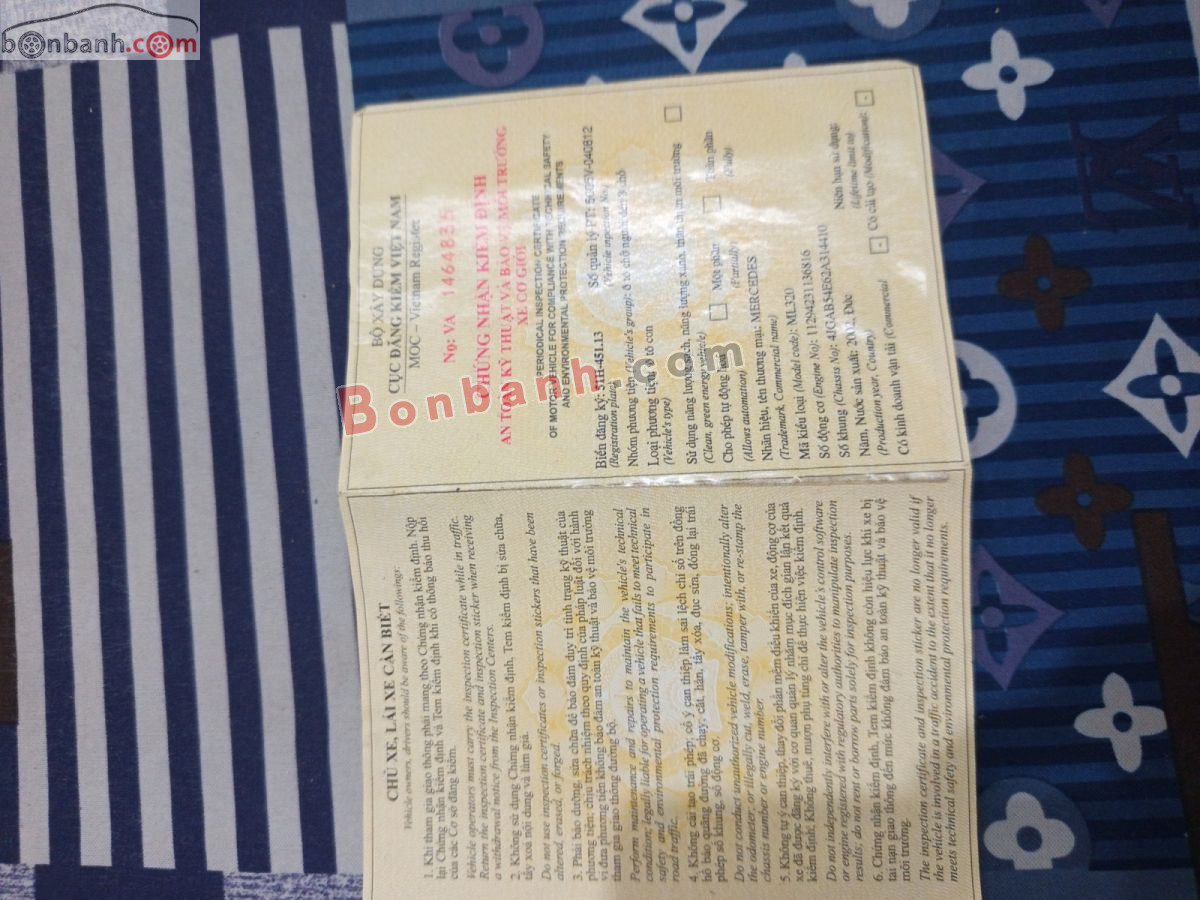 bonbanh.com
Bonbanh.com
CHỦ XE, LÁI XE CẦN BIẾT
Vehicle owners, drivers should be aware of the followings:
1. Khi tham gia giao thông phải mang theo Chứng nhận kiểm định. Nộp
lại Chứng nhận kiểm định và Tem kiểm định khi có thông báo thu hồi
của các Cơ sở đăng kiểm.
Vehicle operators must carry the inspection certificate while in traffic.
Return the inspection certificate and inspection sticker when receiving
a withdrawal notice from the Inspection Centers.
2. Không sử dụng Chứng nhận kiểm định, Tem kiểm định bị sửa chữa,
tẩy xoá nội dung và làm giả.
Do not use inspection certificates or inspection stickers that have been
altered, erased, or forged.
3. Phải bảo dưỡng, sửa chữa để bảo đảm duy trì tình trạng kỹ thuật của
phương tiện; chịu trách nhiệm theo quy định của pháp luật đối với hành
vi đưa phương tiện không bảo đảm an toàn kỹ thuật và bảo vệ môi trường
tham gia giao thông đường bộ.
Perform maintenance and repairs to maintain the vehicle's technical
condition; legally liable for operating a vehicle that fails to meet technical
safety and environmental protection requirements to participate in
road traffic.
4. Không cải tạo trái phép; cố ý can thiệp làm sai lệch chỉ số trên đồng
hồ báo quãng đường đã chạy; cắt, hàn, tẩy xóa, đục sửa, đóng lại trái
phép số khung, số động cơ.
Do not conduct unauthorized vehicle modifications; intentionally alter
the odometer; or illegally cut, weld, erase, tamper with, or re-stamp the
chassis number or engine number.
5. Không tự ý can thiệp, thay đổi phần mềm điều khiển của xe, động cơ của
xe đã được đăng ký với cơ quan quản lý nhằm mục đích gian lận kết quả
kiểm định; Không thuê, mượn phụ tùng chỉ để thực hiện việc kiểm định.
Do not independently interfere with or alter the vehicle's control software
or engine registered with regulatory authorities to manipulate inspection
results; do not rent or borrow parts solely for inspection purposes.
6. Chứng nhận kiểm định, Tem kiểm định không còn hiệu lực khi xe bị
tai nạn giao thông đến mức không đảm bảo an toàn kỹ thuật và bảo vệ
môi trường.
The inspection certificate and inspection sticker are no longer valid if
the vehicle is involved in a traffic accident to the extent that it no longer
meets technical safety and environmental protection requirements.
BỘ XÂY DỰNG
CỤC ĐĂNG KIỂM VIỆT NAM
MOC – Vietnam Register
No: VA 1464835
CHỨNG NHẬN KIỂM ĐỊNH
AN TOÀN KỸ THUẬT VÀ BẢO VỆ MÔI TRƯỜNG
XE CƠ GIỚI
PERIODICAL INSPECTION CERTIFICATE
OF MOTOR VEHICLE FOR COMPLIANCE WITH TECHNICAL SAFETY
AND ENVIRONMENTAL PROTECTION REQUIREMENTS
Biển đăng ký: 51H-451.13 Số quản lý PT: V-040812
(Registration plate) (Vehicle inpection No)
Nhóm phương tiện (Vehicle's group): ô tô chở người đến
Loại phương tiện: ô tô con
(Vehicle's type)
Sử dụng năng lượng sạch, năng lượng xanh, thân thiện môi trường
(Clean, green energy vehicle)
Cho phép tự động hóa Một phần Toàn phần
(Allows automation) (Partially) (Fully)
Nhãn hiệu, tên thương mại: MERCEDES
(Trademark, Commercial name)
Mã kiểu loại (Model code): ML320
Số động cơ (Engine No): 11294231136816
Số khung (Chassis No): 4JGAB54E62A314410
Năm, Nước sản xuất: 2002, Đức Niên hạn sử dụng:
(Production year, Country) (Lifetime limit to)
Có kinh doanh vận tải (Commercial Có cải tạo (Modification):